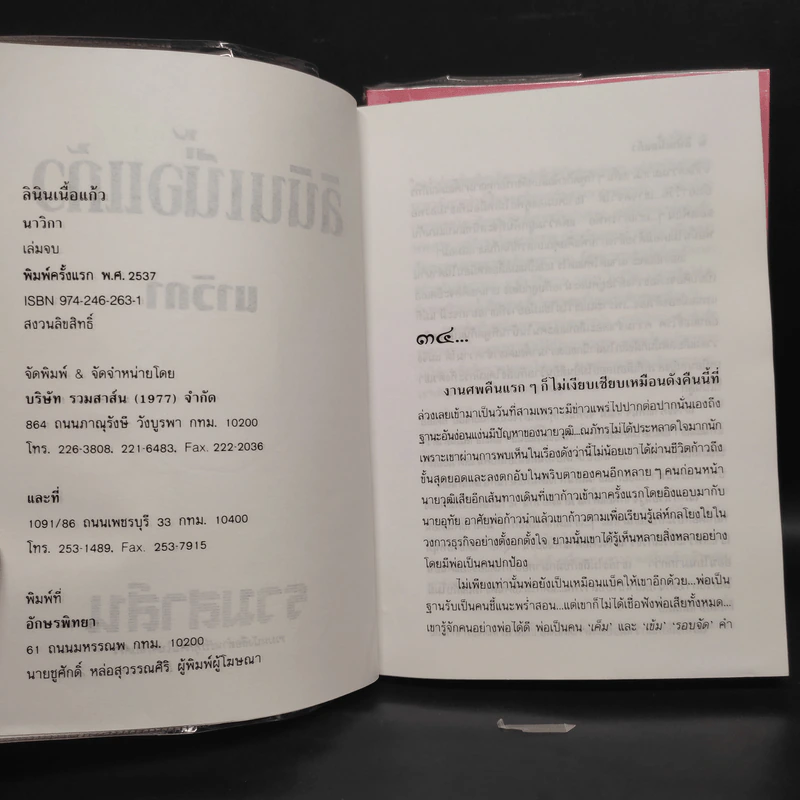 ลินินเนื้อแก้ว
นาวิกา
เล่มจบ
พิมพ์ครั้งแรก พ.ศ. 2537
ISBN 974-246-263-1
สงวนลิขสิทธิ์
จัดพิมพ์ & จัดจำหน่ายโดย
บริษัท รวมสาส์น (1977) จำกัด
864 ถนนภาณุรังษี วังบูรพา กทม. 10200
โทร. 226-3808, 221-6483, Fax. 222-2036
และที่
1091/86 ถนนเพชรบุรี 33 กทม. 10400
โทร. 253-1489, Fax. 253-7915
พิมพ์ที่
อักษรพิทยา
61 ถนนมหรรณพ กทม. 10200
นายชูศักดิ์ หล่อสุวรรณศิริ ผู้พิมพ์ผู้โฆษณา
๓๔...
งานศพคืนแรก ๆ ก็ไม่เงียบเชียบเหมือนดังคืนนี้ที่
ล่วงเลยเข้ามาเป็นวันที่สามเพราะมีข่าวแพร่ไปปากต่อปากนั่นเองถึง
ฐานะอันง่อนแง่นมีปัญหาของนายวุฒิ...ณภัทรไม่ได้ประหลาดใจมากนัก
เพราะเขาผ่านการพบเห็นในเรื่องดังว่านี้ไม่น้อยเขาได้ผ่านชีวิตก้าวถึง
ขั้นสุดยอดและลงตกอับในพริบตาของคนอีกหลาย ๆ คนก่อนหน้า
นายวุฒิเสียอีกเส้นทางเดินที่เขาก้าวเข้ามาครั้งแรกโดยอิงแอบมากับ
นายอุทัย อาศัยพ่อก้าวนำแล้วเขาก้าวตามเพื่อเรียนรู้เล่ห์กลโยงใยใน
วงการธุรกิจอย่างตั้งอกตั้งใจ ยามนั้นเขาได้รู้เห็นหลายสิ่งหลายอย่าง
โดยมีพ่อเป็นคนปกป้อง
ไม่เพียงเท่านั้นพ่อยังเป็นเหมือนแบ็คให้เขาอีกด้วย...พ่อเป็น
ฐานรับเป็นคนชี้แนะพร่ำสอน...แต่เขาก็ไม่ได้เชื่อฟังพ่อเสียทั้งหมด...
เขารู้จักคนอย่างพ่อได้ดี พ่อเป็นคน ‘เค็ม’ และ ‘เข้ม’ ‘รอบจัด’ คำ